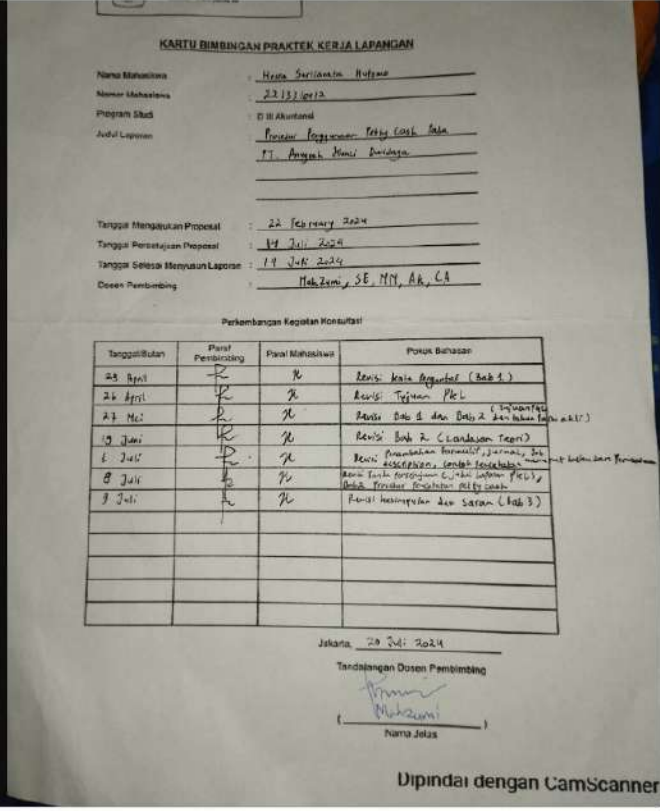 KARTU BIMBINGAN PRAKTEK KERJA LAPANGAN
Nama Mahasiswa :
Nomor Mahasiswa :
Program Studi : D III Akuntansi
Judul Laporan : Prosedur Penggunaan Petty Cash Pada
PT.
Tanggal Mengajukan Proposal : 22 February 2024
Tanggal Persetujuan Proposal : 19 Juli 2024
Tanggal Selesai Menyusun Laporan : 19 Juli 2024
Dosen Pembimbing : Makzumi, SE, MM, AK, CA
Perkembangan Kegiatan Konsultasi
Tanggal/Bulan Paraf Pembimbing Paraf Mahasiswa Pokok Bahasan
23 April Revisi Kata Pengantar (Bab 1)
26 April Revisi Tujuan PKL
27 Mei Revisi Bab 1 dan Bab 2
19 Juni Revisi Bab 2 (Landasan Teori)
6 Juli Revisi Penambahan Jurnal, Job description, contoh pencatatan
8 Juli Revisi Tanda Persetujuan (Judul Laporan PKL),
Bab 2 Prosedur Pencatatan petty cash
9 Juli Revisi kesimpulan dan saran (Bab 3)
Jakarta, 20 Juli 2024
Tandatangan Dosen Pembimbing
Makzumi
( )
Nama Jelas
Dipindai dengan CamScanner